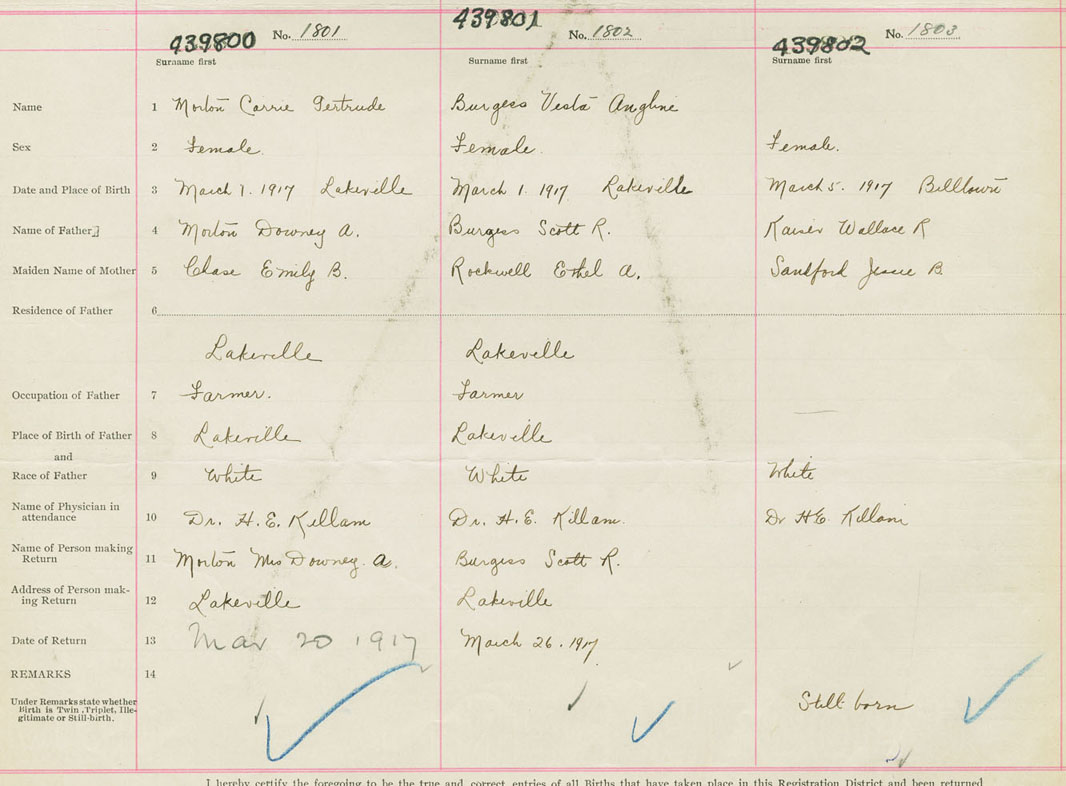 439800 No. 1801 439801 No. 1802 439802 No. 1803
Surname first Surname first Surname first
Name 1 Morton Carrie Gertrude Burgess Vesta Angline
Sex 2 Female. Female. Female.
Date and Place of Birth 3 March 1. 1917 Lakeville March 1. 1917 Lakeville March 5. 1917 Belltown
Name of Father 4 Morton Downey A. Burgess Scott R. Kaiser Wallace R
Maiden Name of Mother 5 Chase Emily B. Rockwell Ethel A. Sandford Jessie B
Residence of Father 6
Lakeville Lakeville
Occupation of Father 7 Farmer. Farmer
Place of Birth of Father 8 Lakeville Lakeville
and
Race of Father 9 White White White
Name of Physician in
attendance 10 Dr. H. E. Killam Dr. H. E. Killam. Dr H E. Killam
Name of Person making
Return 11 Morton Mrs Downey. A. Burgess Scott R.
Address of Person mak-
ing Return 12 Lakeville Lakeville
Date of Return 13 Mar 20 1917 March 26. 1917
REMARKS 14
Under Remarks state whether
Birth is Twin, Triplet, Ille-
gitimate or Still-birth. Still born
I hereby certify the foregoing to be the true and correct entries of all Births that have taken place in this Registration District and been returned